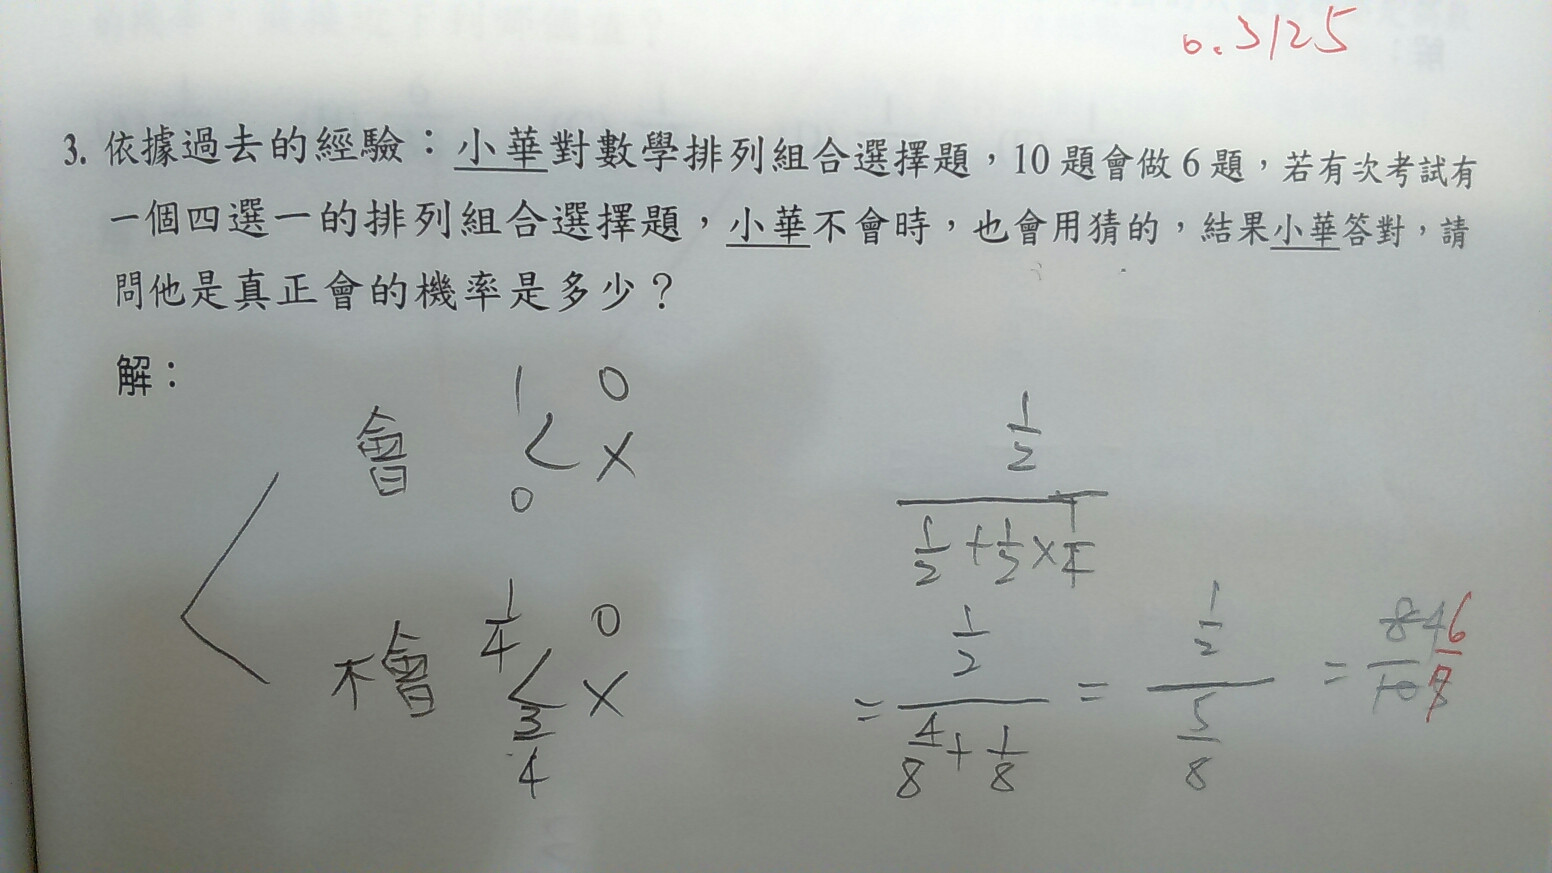 0.3125
3. 依據過去的經驗：小華對數學排列組合選擇題，10 題會做 6 題，若有次考試有
一個四選一的排列組合選擇題，小華不會時，也會用猜的，結果小華答對，請
問他是真正會的機率是多少？
解：
1 0
會 < X
0
1/4 0
不會 < X
3/4
1/2
1/2 + 1/2 × 1/4
= 1/2 / (4/8 + 1/8) = 1/2 / 5/8 = 8/10 4 6/7